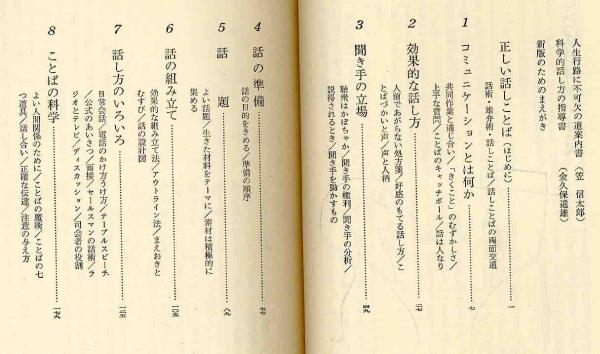 人生行路に不可欠の道案内書 （笠　信太郎）
科学的話し方の指導書 （金久保通雄）
新版のためのまえがき
正しい話しことば（はじめに）…………一
話術・雄弁術・話しことば／話しことばの両面交通
1　コミュニケーションとは何か…………七
共同作業と通じ合い／「きくこと」のむずかしさ／
上手な質問／ことばのキャッチボール／話は人なり
2　効果的な話し方…………二七
人前であがらない処方箋／好感のもてる話し方／こ
とばづかいと声／声と人柄
3　聞き手の立場…………四九
聴衆はかぼちゃか／聞き手の権利／聞き手の分析／
説得されるとき／聞き手を動かすもの
4　話の準備…………七七
話の目的をきめる／準備の順序
5　話　題…………八九
よい話題／生きた材料をテーマに／素材は積極的に
集める
6　話の組み立て…………一〇五
効果的な組み立て法／アウトライン法／まえおきと
むすび／話の設計図
7　話し方のいろいろ…………一二五
日常会話／電話のかけ方うけ方／テーブルスピーチ
／公式のあいさつ／面接／セールスマンの話術／ラ
ジオとテレビ／ディスカッション／司会者の役割
8　ことばの科学…………一七九
よい人間関係のために／ことばの魔術／ことばの七
つ道具／話し合い／正確な伝達／注意の与え方